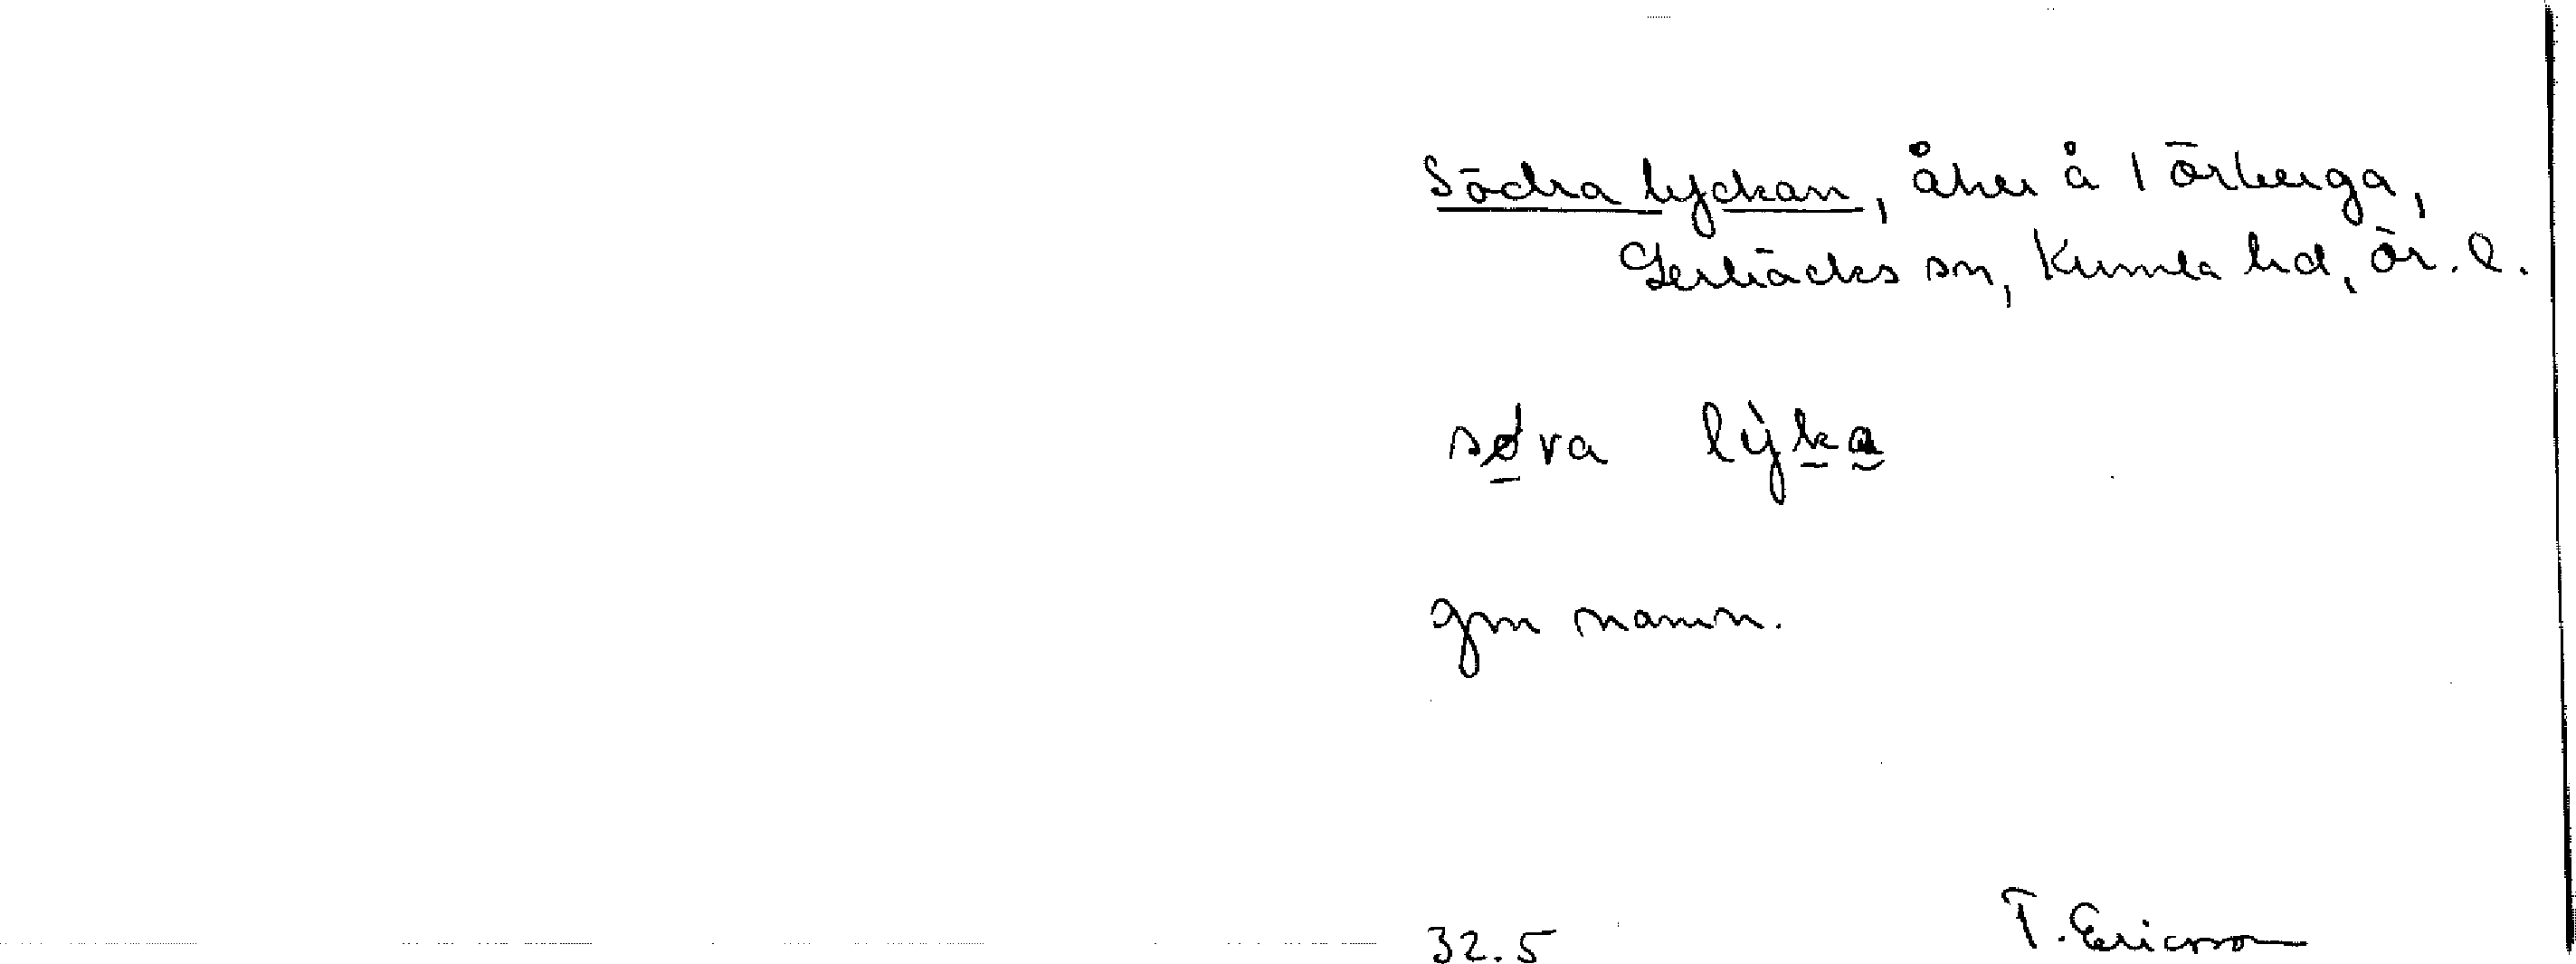 Södra lyckan, åker å 1 Örberga,
Lerbäcks sn, Kumla hd, Ör. l.
søva lỳka
gm namn.
32.5 T. Ericsson